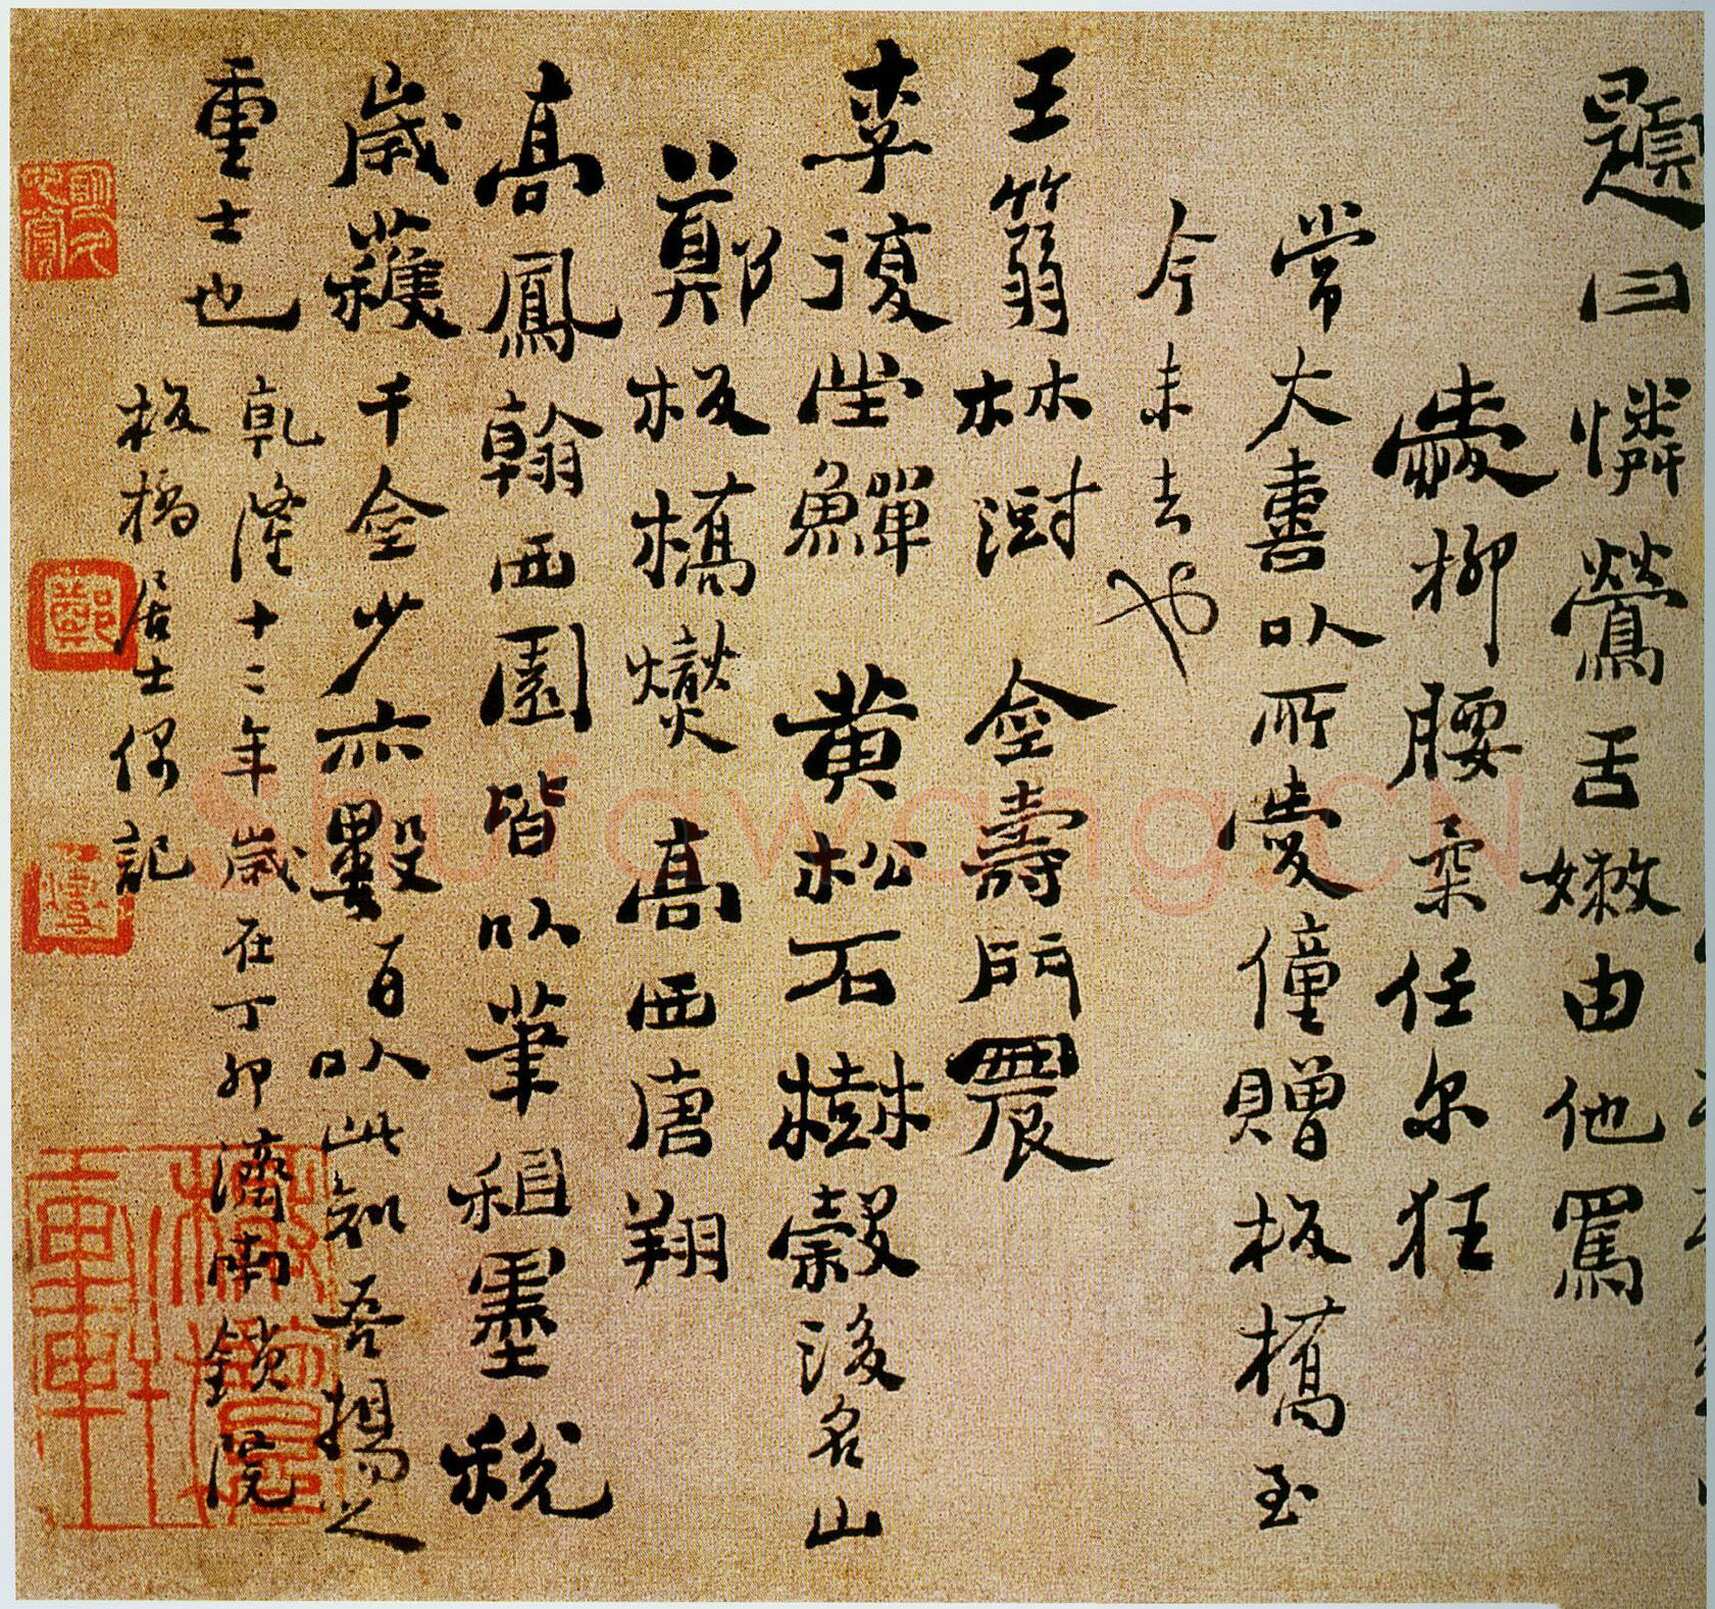 題曰憐鶯舌嫩由他罵
愛柳腰柔任尔狂
常大喜以所愛僮贈板橋至
今未去也
王篛林澍 金壽門農
李復坣鱓 黄松石樹穀後名山
鄭板橋燮 高西唐翔
高鳳翰西園皆以筆租墨稅
歲穫千金少亦數百以此知吾揚之
重士也 乾隆十二年歲在丁卯濟南鎖院
板橋居士偶記
鄭
Shufawang.CN